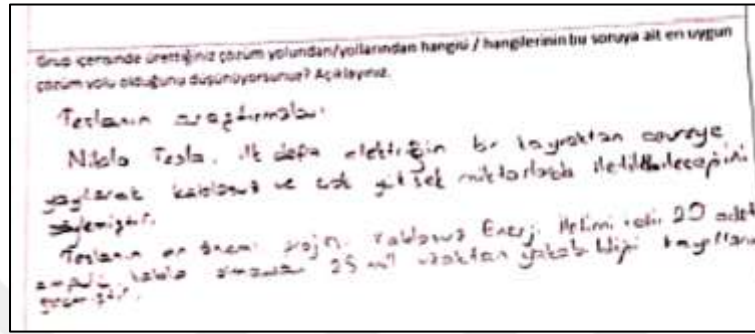 Grup içerisinde ürettiğiniz çözüm yolundan/yollarından hangisi / hangilerinin bu soruya ait en uygun
çözüm yolu olduğunu düşünüyorsunuz? Açıklayınız.
Teslanın araştırmaları
Nikola Tesla, ilk defa elektriğin bir kaynaktan çevreye
yayılarak kablosuz ve çok yüksek miktarlarda iletilebileceğini
söylemiştir.
Teslanın en önemli projesi Kablosuz Enerji İletimi 20 adet
ampulü kablo olmadan 25 mil uzaktan yakabildiği kayıtlara
geçmiştir.